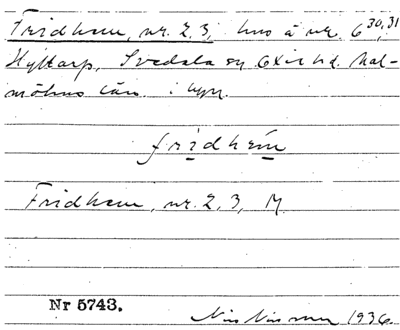 Fridhem, nr. 2, 3, hus å nr. 6 30, 31
Hyltarp, Svedala sn Oxie hd. Mal-
möhus län.
fridhem
Fridhem, nr. 2, 3, M
Nr 5743.
Nils Nilsson 1936.